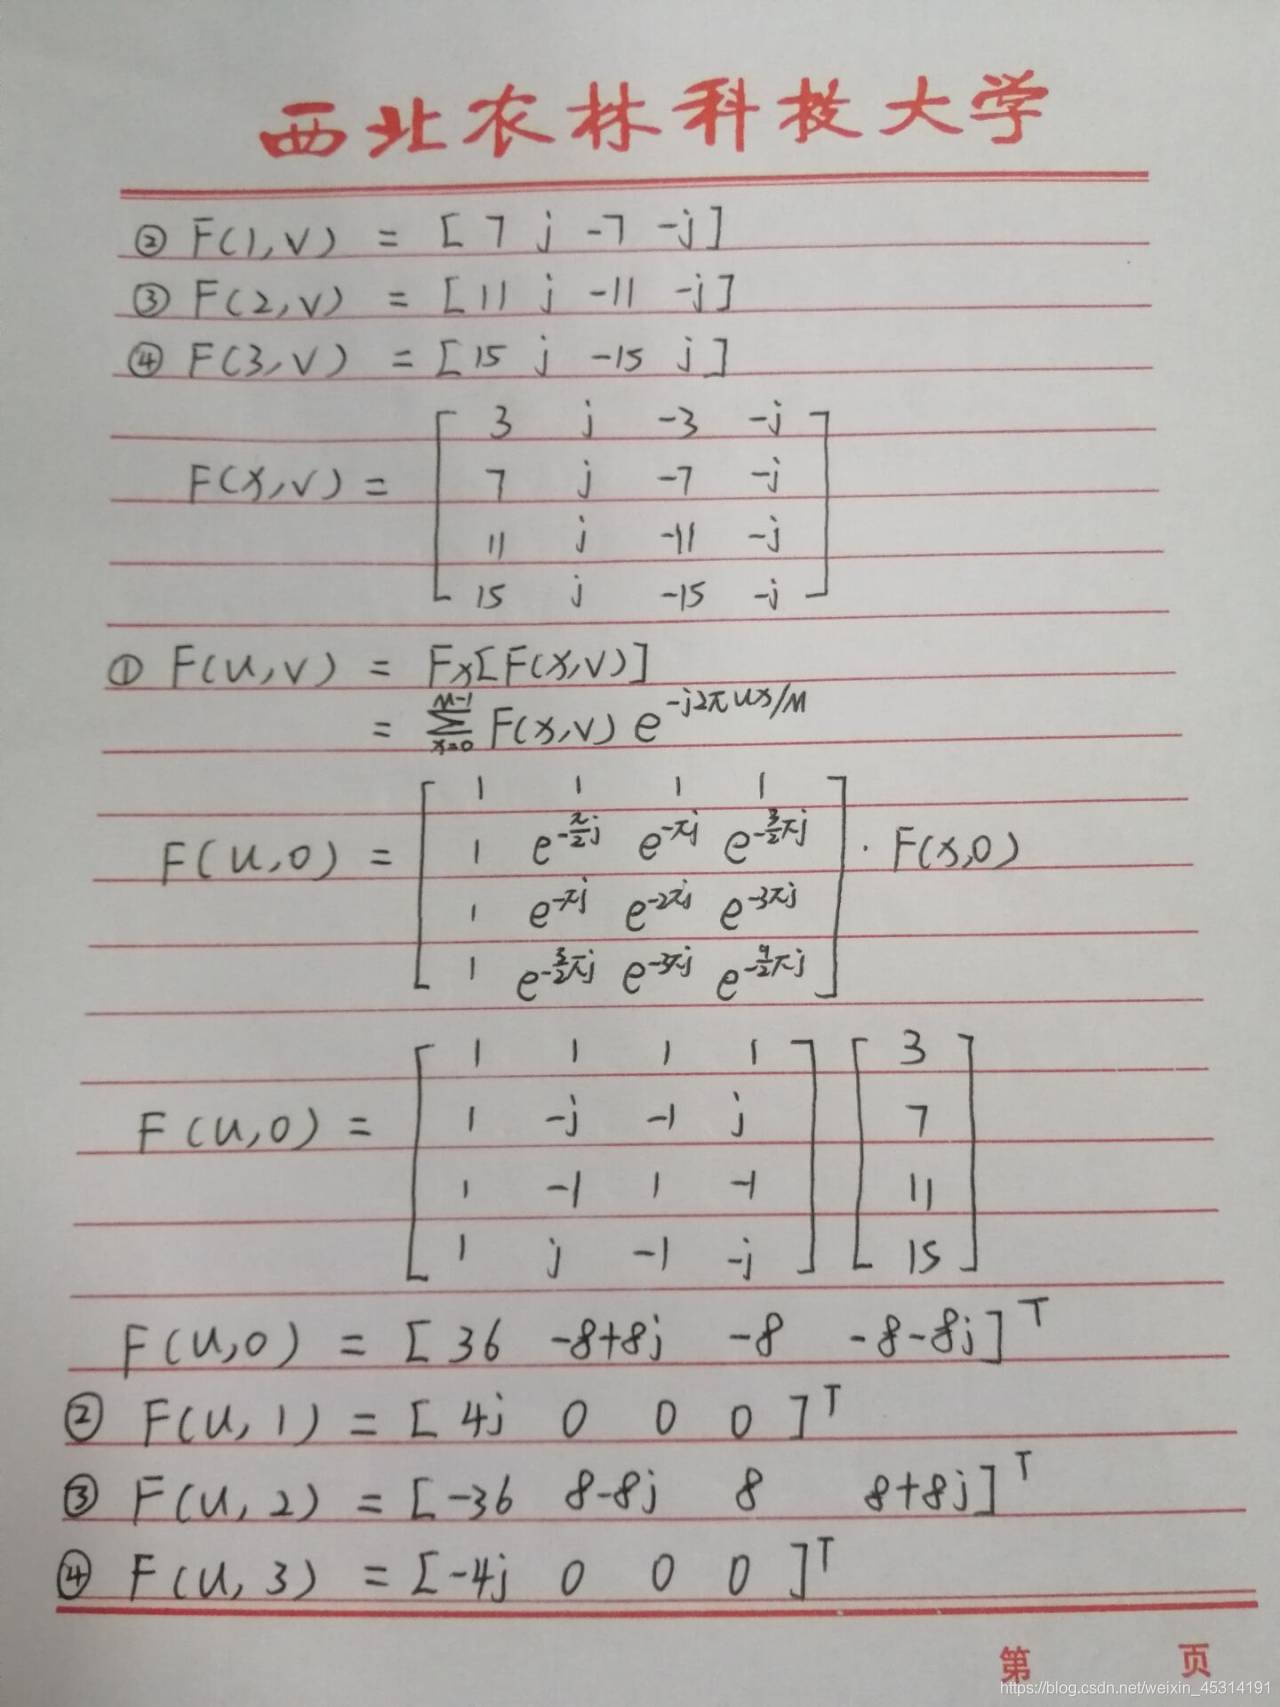 西北农林科技大学
② F(1,v) = [7 j -7 -j]
③ F(2,v) = [11 j -11 -j]
④ F(3,v) = [15 j -15 j]
3 j -3 -j
F(x,v) = 7 j -7 -j
11 j -11 -j
15 j -15 -j
① F(u,v) = Fx[F(x,v)]
= ∑_{x=0}^{M-1} F(x,v) e^{-j2πux/M}
1 1 1 1
F(u,0) = 1 e^{-π/2 j} e^{-πj} e^{-3/2 πj} · F(x,0)
1 e^{-πj} e^{-2πj} e^{-3πj}
1 e^{-3/2 πj} e^{-3πj} e^{-9/2 πj}
1 1 1 1 3
F(u,0) = 1 -j -1 j 7
1 -1 1 -1 11
1 j -1 -j 15
F(u,0) = [36 -8+8j -8 -8-8j]^T
② F(u,1) = [4j 0 0 0]^T
③ F(u,2) = [-36 8-8j 8 8+8j]^T
④ F(u,3) = [-4j 0 0 0]^T
第 页
https://blog.csdn.net/weixin_45314191